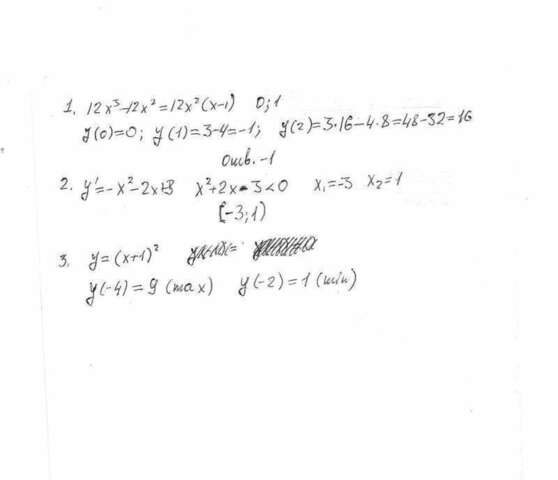 1. 12x³-12x²=12x²(x-1) 0;1
y(0)=0; y(1)=3-4=-1; y(2)=3·16-4·8=48-32=16
Отв. -1
2. y'=-x²-2x+3 x²+2x-3<0 x₁=-3 x₂=1
(-3;1)
3. y=(x+1)²
y(-4)=9 (max) y(-2)=1 (min)